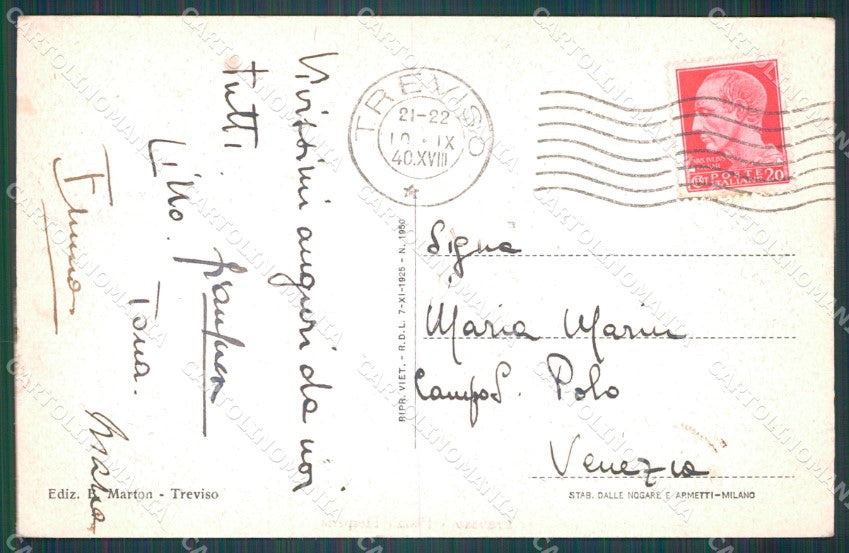 Vivissimi auguri da noi
tutti
Lino.
Tona.
TREVISO
21-22
IX
40.XVIII
POSTE
ITALIANE
20
Signa
Maria Marin
Campo S. Polo
Venezia
RIPR. VIET. - R.D.L. 7-XI-1925 - N. 1950
Ediz. B. Marton - Treviso
STAB. DALLE NOGARE E ARMETTI-MILANO
CARTOLINOMANIA